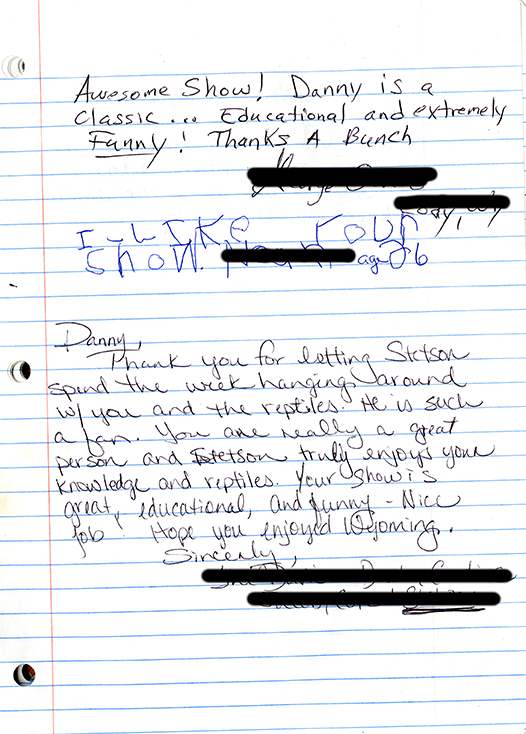 Awesome Show! Danny is a
classic... Educational and extremely
Funny! Thanks A Bunch
I LIKE YOUR
Show. age 6
Danny,
Thank you for letting Stetson
spend the week hanging around
w/ you and the reptiles. He is such
a fan. You are really a great
person and Stetson truly enjoys your
knowledge and reptiles. Your show is
great, educational, and funny - Nice
job! Hope you enjoyed Wyoming.
Sincerely,